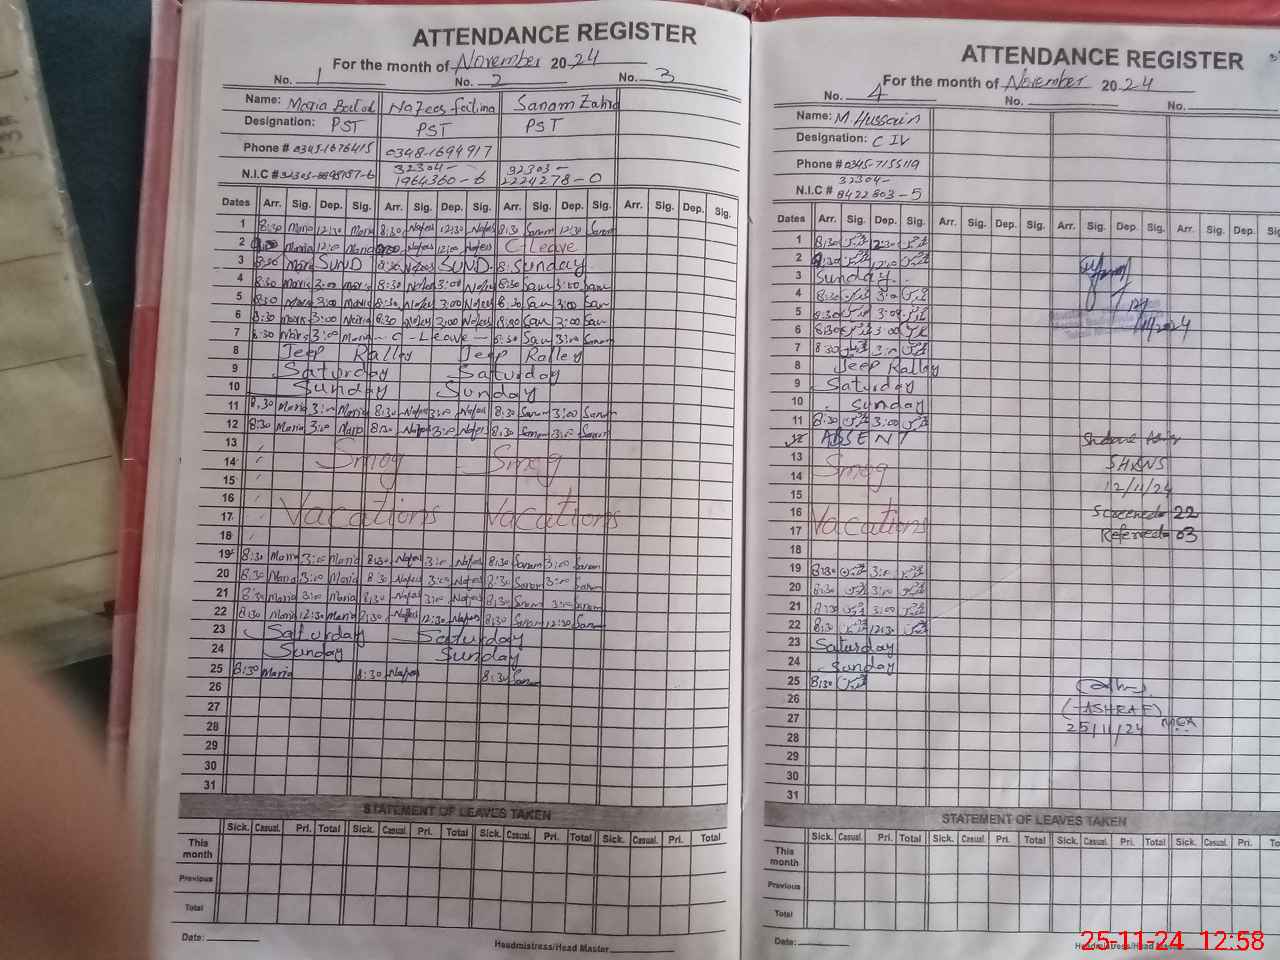 ATTENDANCE REGISTER
For the month of November 2024
No. 1 No. 2 No. 3
Name: Maria Nafees fatima Sanam Zahra
Designation: PST PST PST
Phone # 0345-1676415 0348-1694917
N.I.C # 32304-1964360-6 32303-2224278-0
Dates Arr. Sig. Dep. Sig. Arr. Sig. Dep. Sig. Arr. Sig. Dep. Sig. Arr. Sig. Dep. Sig.
1 8:30 Maria 12:30 Maria 8:30 Nafees 12:30 Nafees 8:30 Sanam 12:30 Sanam
2 Maria 12:00 Maria Nafees 12:00 Nafees C-Leave
3 8:30 Maria SUND 8:30 Nafees SUND 8: Sunday
4 8:30 Maria 3:00 Maria 8:30 Nafees 3:00 Nafees 8:30 Sam 3:00 Sam
5 8:30 Maria 3:00 Maria 8:30 Nafees 3:00 Nafees 8:30 Sam 3:00 Sam
6 8:30 Maria 3:00 Maria 8:30 Nafees 3:00 Nafees Sam 3:00 Sam
7 8:30 Maria 3:00 Maria - C - Leave - 8:30 Sam 3:00 Sanam
8 Jeep Ralley Jeep Ralley
9 Saturday Saturday
10 Sunday Sunday
11 8:30 Maria 3:00 Maria 8:30 Nafees 3:00 Nafees 8:30 Sanam 3:00 Sanam
12 8:30 Maria 3:00 Maria 8:30 Nafees 3:00 Nafees 8:30 Sanam 3:00 Sanam
13
14 Smog Smog
15
16
17 Vacations Vacations
18
19 8:30 Maria 3:00 Maria 8:30 Nafees 3:00 Nafees 8:30 Sanam 3:00 Sanam
20 8:30 Maria 3:00 Maria 8:30 Nafees 3:00 Nafees 8:30 Sanam 3:00 Sanam
21 8:30 Maria 3:00 Maria 8:30 Nafees 3:00 Nafees 8:30 Sanam 3:00 Sanam
22 8:30 Maria 12:30 Maria 8:30 Nafees 12:30 Nafees 8:30 Sanam 12:30 Sanam
23 Saturday Saturday
24 Sunday Sunday
25 8:30 Maria 8:30 Nafees 8:30 Sanam
26
27
28
29
30
31
STATEMENT OF LEAVES TAKEN
Sick. Casual. Pri. Total Sick. Casual. Pri. Total Sick. Casual. Pri. Total Sick. Casual. Pri. Total
This month
Previous
Total
Date:
Headmistress/Head Master
ATTENDANCE REGISTER
For the month of November 2024
No. 4 No. No.
Name: M. Hussain
Designation: C IV
Phone # 0345-7155119
N.I.C # 32304-8422803-5
Dates Arr. Sig. Dep. Sig. Arr. Sig. Dep. Sig. Arr. Sig. Dep. Sig. Arr. Sig. Dep.
1 8:30 12:30
2 12:00
3 Sunday
4 8:30 3:00
5 8:30 3:00
6 8:30 3:00
7 8:30 3:00
8 Jeep Ralley
9 Saturday
10 Sunday
11 8:30 3:00
12 ABSENT
13 SH&NS
14 Smog
15 12/11/24
16 Screened 22
17 Vacations Referred 03
18
19 8:30 3:00
20 8:30 3:00
21 8:30 3:00
22 8:30 12:30
23 Saturday
24 Sunday
25 8:30
26 (ASHRAF)
27 25/11/24 MEA
28
29
30
31
STATEMENT OF LEAVES TAKEN
Sick. Casual. Pri. Total Sick. Casual. Pri. Total Sick. Casual. Pri. Total Sick. Casual. Pri.
This month
Previous
Total
Date:
25-11-24 12:58